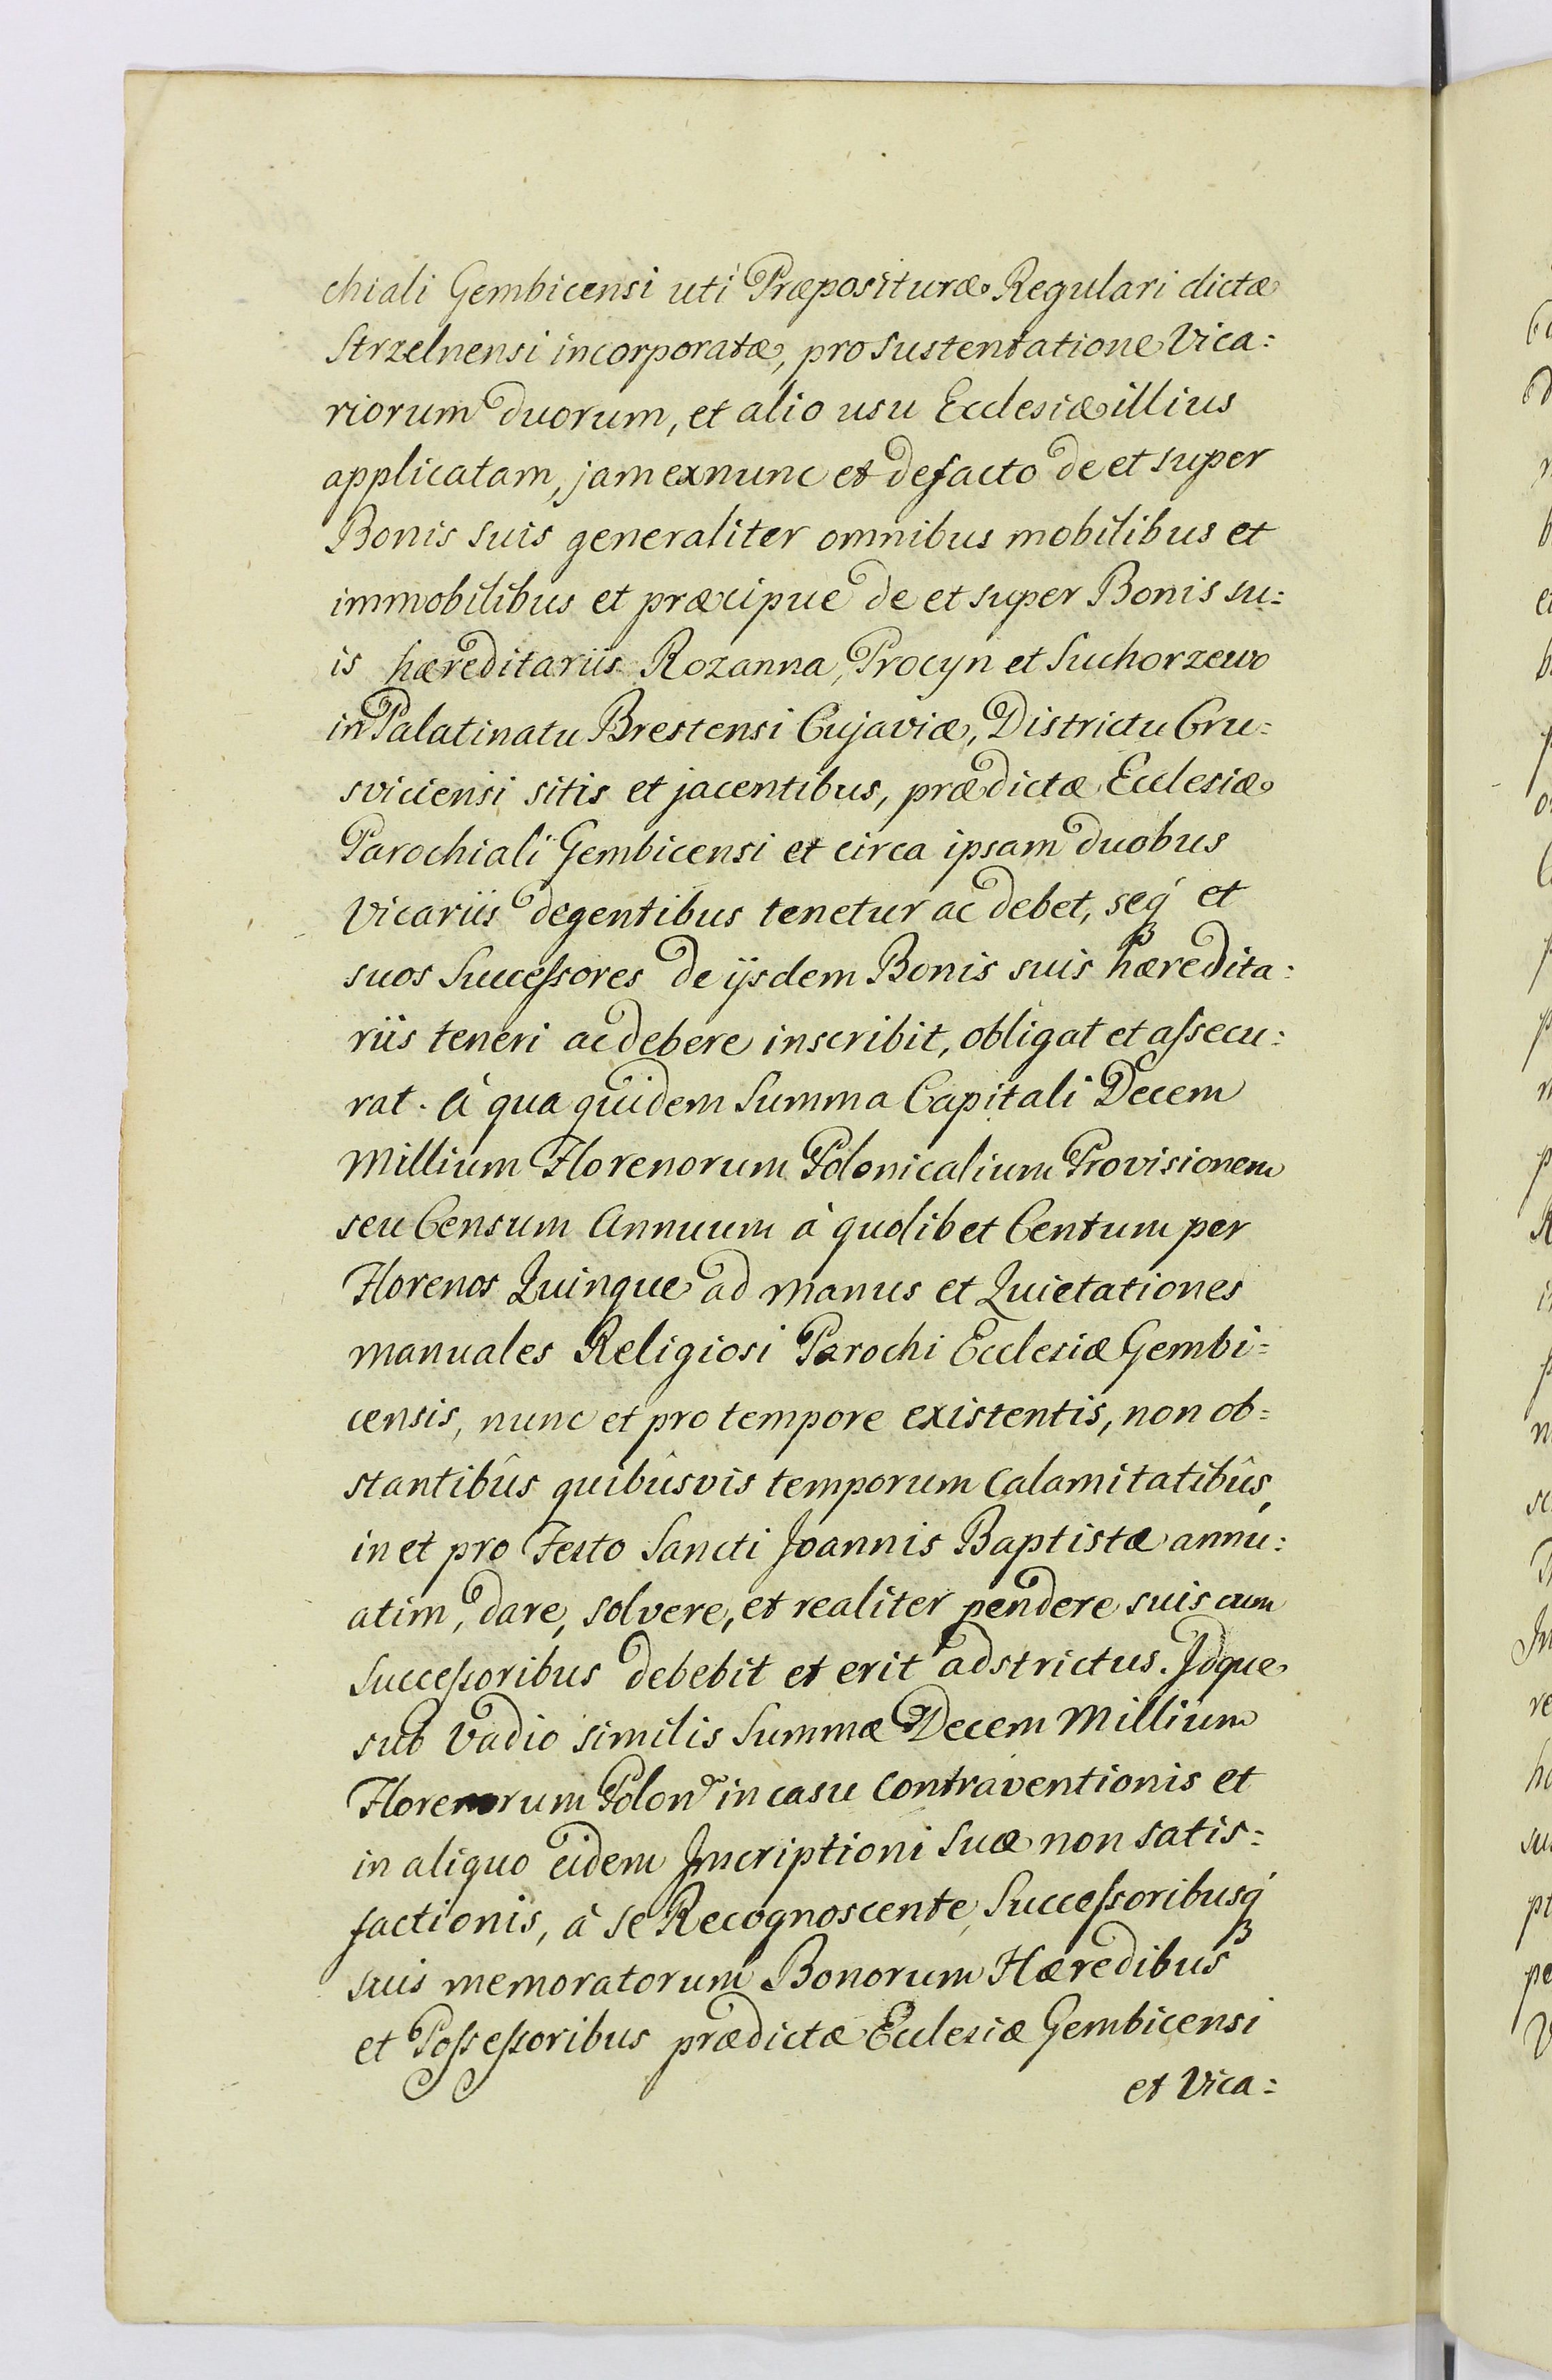 chiali Gembicensi uti Præposituræ Regulari dictæ
Strzelnensi incorporatæ, pro sustentatione Vica:
riorum duorum, et alio usu Ecclesiæ illius
applicatam, jam exnunc et defacto de et super
Bonis suis generaliter omnibus mobilibus et
immobilibus et præcipue de et super Bonis su:
is hæreditariis Rozanna, Procyn et Suchorzewo
in Palatinatu Brestensi Cujaviæ, Districtu Cru:
sviciensi sitis et jacentibus, prædictæ Ecclesiæ
Parochiali Gembicensi et circa ipsam duobus
Vicariis degentibus tenetur ac debet, seq́ et
suos Succeſsores de ijsdem Bonis suis hæredita:
riis teneri ac debere inscribit, obligat et aſsecu:
rat. à qua quidem Summa Capitali Decem
Millium Florenorum Polonicalium Provisionem
seu Censum Annuum à quolibet Centum per
Florenos Quinque ad manus et Quietationes
manuales Religiosi Parochi Ecclesiæ Gembi:
censis, nunc et pro tempore existentis, non ob:
stantibûs quibûsvis temporum Calamitatibûs,
in et pro Festo Sancti Joannis Baptistæ annu:
atim, dare, solvere, et realiter pendere suis cum
Succeſsoribus debebit et erit adstrictus. Idque
sub Vadio similis Summæ Decem Millium
Florenorum Polon in casu Contraventionis et
in aliquo eidem Inscriptioni Suæ non satis:
factionis, à se Recognoscente, Succeſsoribusq́
suis memoratorum Bonorum Hæredibus
et Poſseſsoribus prædictæ Ecclesiæ Gembicensi
et Vica: